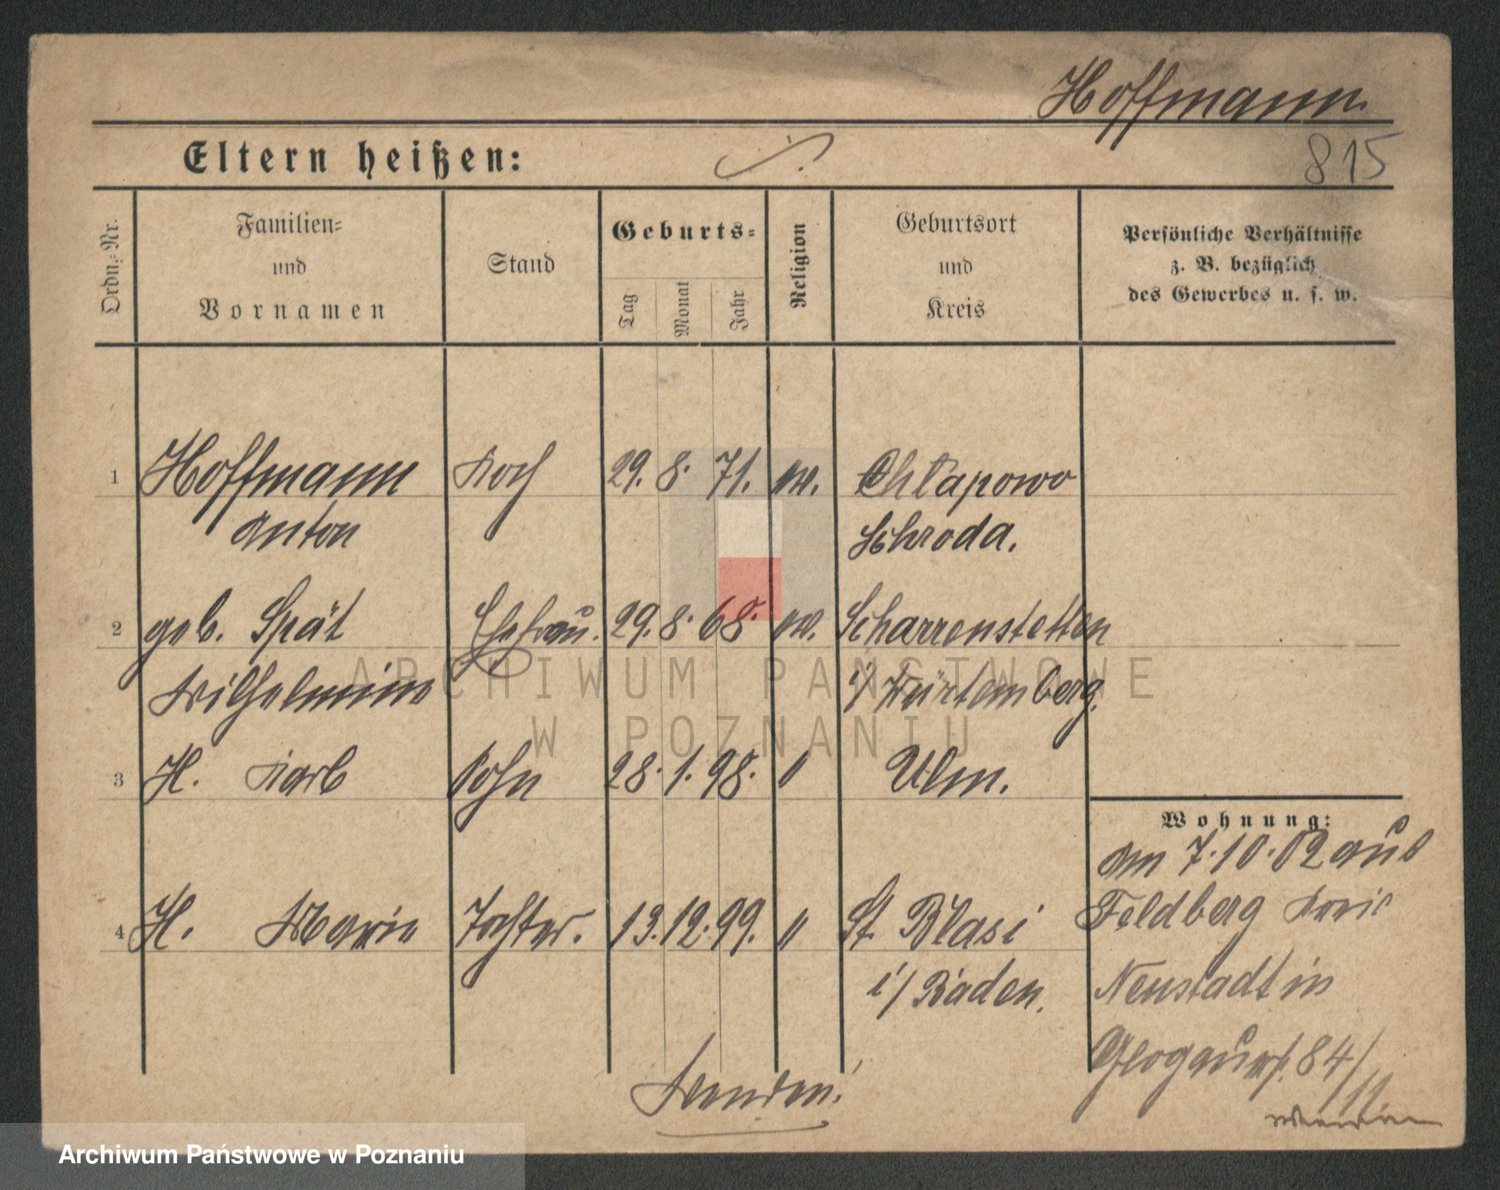 Hoffmann.
815
Eltern heißen:
Ordn.-Nr.
Familien-
und
Vornamen
Stand
Geburts-
Tag
Monat
Jahr
Religion
Geburtsort
und
Kreis
Persönliche Verhältnisse
z. B. bezüglich
des Gewerbes u. s. w.
1 Hoffmann Koch 29. 8. 71. Chłapowo
Anton Schroda.
2 geb. Spät Ehefrau. 29. 8. 68. Scharrenstetten
Wilhelmine i/ Würtemberg.
3 H. Karl Sohn 28. 1. 98. " Ulm.
4 H. Marie Tochter. 13. 12. 99. " St. Blasi
i/ Baden.
Wohnung:
am 7.10.02 aus
Feldberg Kreis
Neustadt in
Glogauerst. 84/
Wenden!
ARCHIWUM PAŃSTWOWE
W POZNANIU
Archiwum Państwowe w Poznaniu